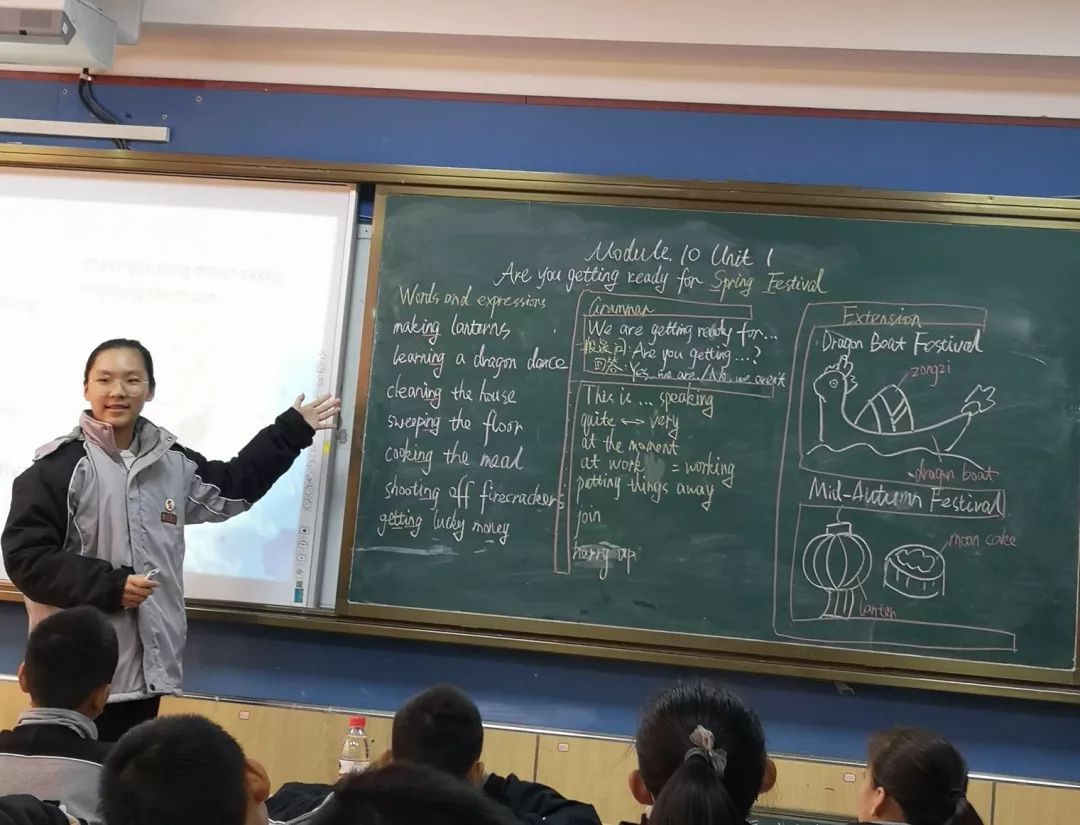 making/eating moon cakes
enjoying the moon
Module 10 Unit 1
Are you getting ready for Spring Festival
Words and expressions
making lanterns
learning a dragon dance
cleaning the house
sweeping the floor
cooking the meal
shooting off firecrackers
getting lucky money
Grammar
We are getting ready for...
一般疑问: Are you getting ...?
回答: Yes, we are. / No, we aren't
This is ... speaking
quite ↔ very
at the moment
at work = working
putting things away
join
hurry up
Extension
Dragon Boat Festival
zongzi
dragon boat
Mid-Autumn Festival
moon cake
lantern